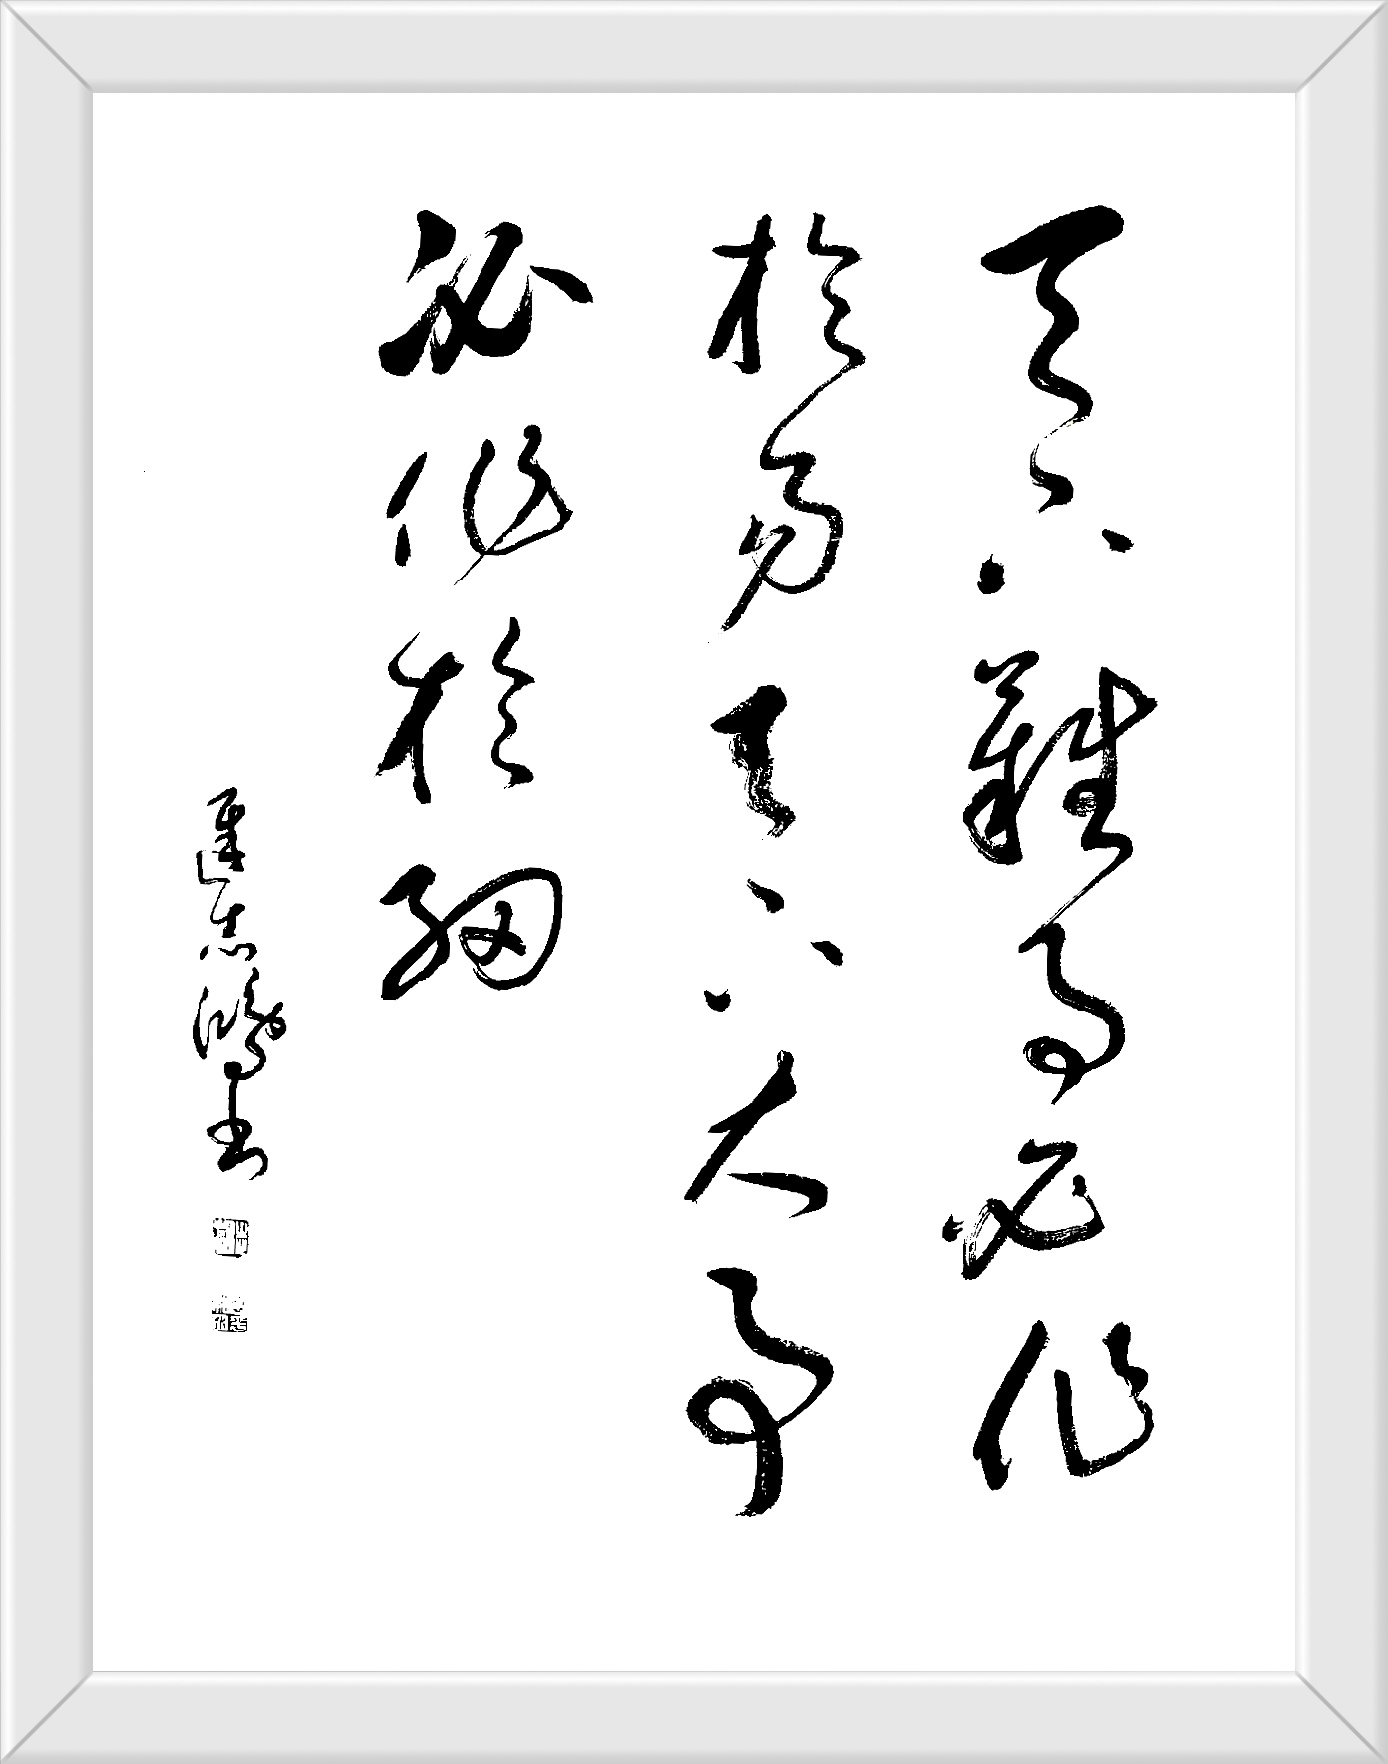 天下難事必作
於易天下大事
必作於細
遲志鴻書